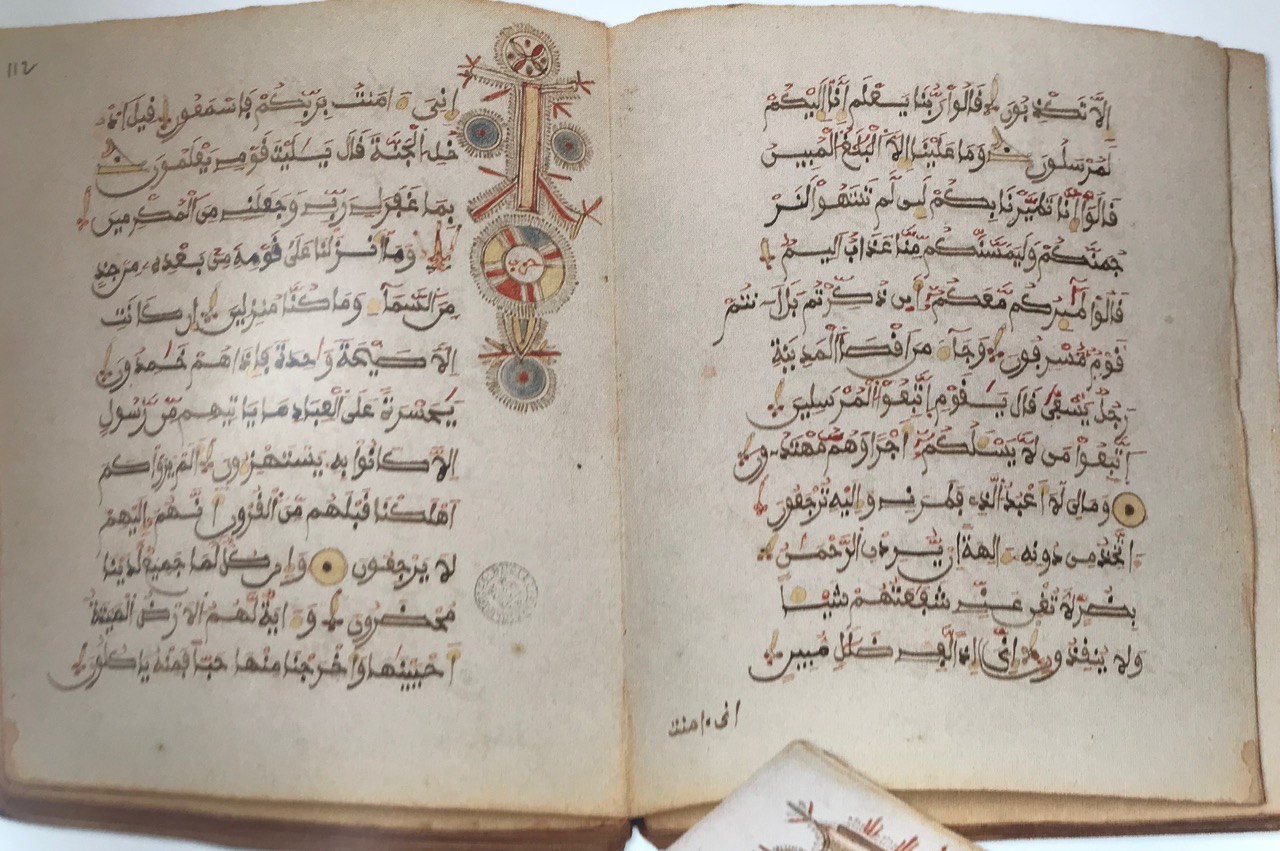 إلا تكذبون قالوا ربنا يعلم إنا إليكم
لمرسلون وما علينا إلا البلغ المبين
قالوا إنا تطيرنا بكم لين لم تنتهوا لنر
جمنكم وليمسنكم منا عذاب اليم
قالوا طيركم معكم أين ذكرتم بل أنتم
قوم مسرفون وجاء من اقصا المدينة
رجل يسعى قال يقوم اتبعوا المرسلين
اتبعوا من لا يسلكم اجرا وهم مهتدون
ومالي لا أعبد الذي فطرني وإليه ترجعون
اتخذ من دونه ءالهة إن يردن الرحمن
بضر لا تغن عني شفعتهم شيا
ولا ينقذون إني إذا لفي ضلل مبين
انى ءامنت
112
إني ءامنت بربكم فاسمعون قيل اد
خل الجنة قال يليت قومي يعلمون
بما غفر لي ربي وجعلني من المكرمين
وما أنزلنا على قومه من بعده من جند
من السماء وما كنا منزلين إن كانت
إلا صيحة وحدة فإذا هم خمدون
يحسرة على العباد ما ياتيهم من رسول
إلا كانوا به يستهزون ألم يروا كم
أهلكنا قبلهم من القرون أنهم إليهم
لا يرجعون وإن كل لما جميع لدينا
محضرون وءاية لهم الارض الميتة
أحيينها وأخرجنا منها حبا فمنه ياكلون